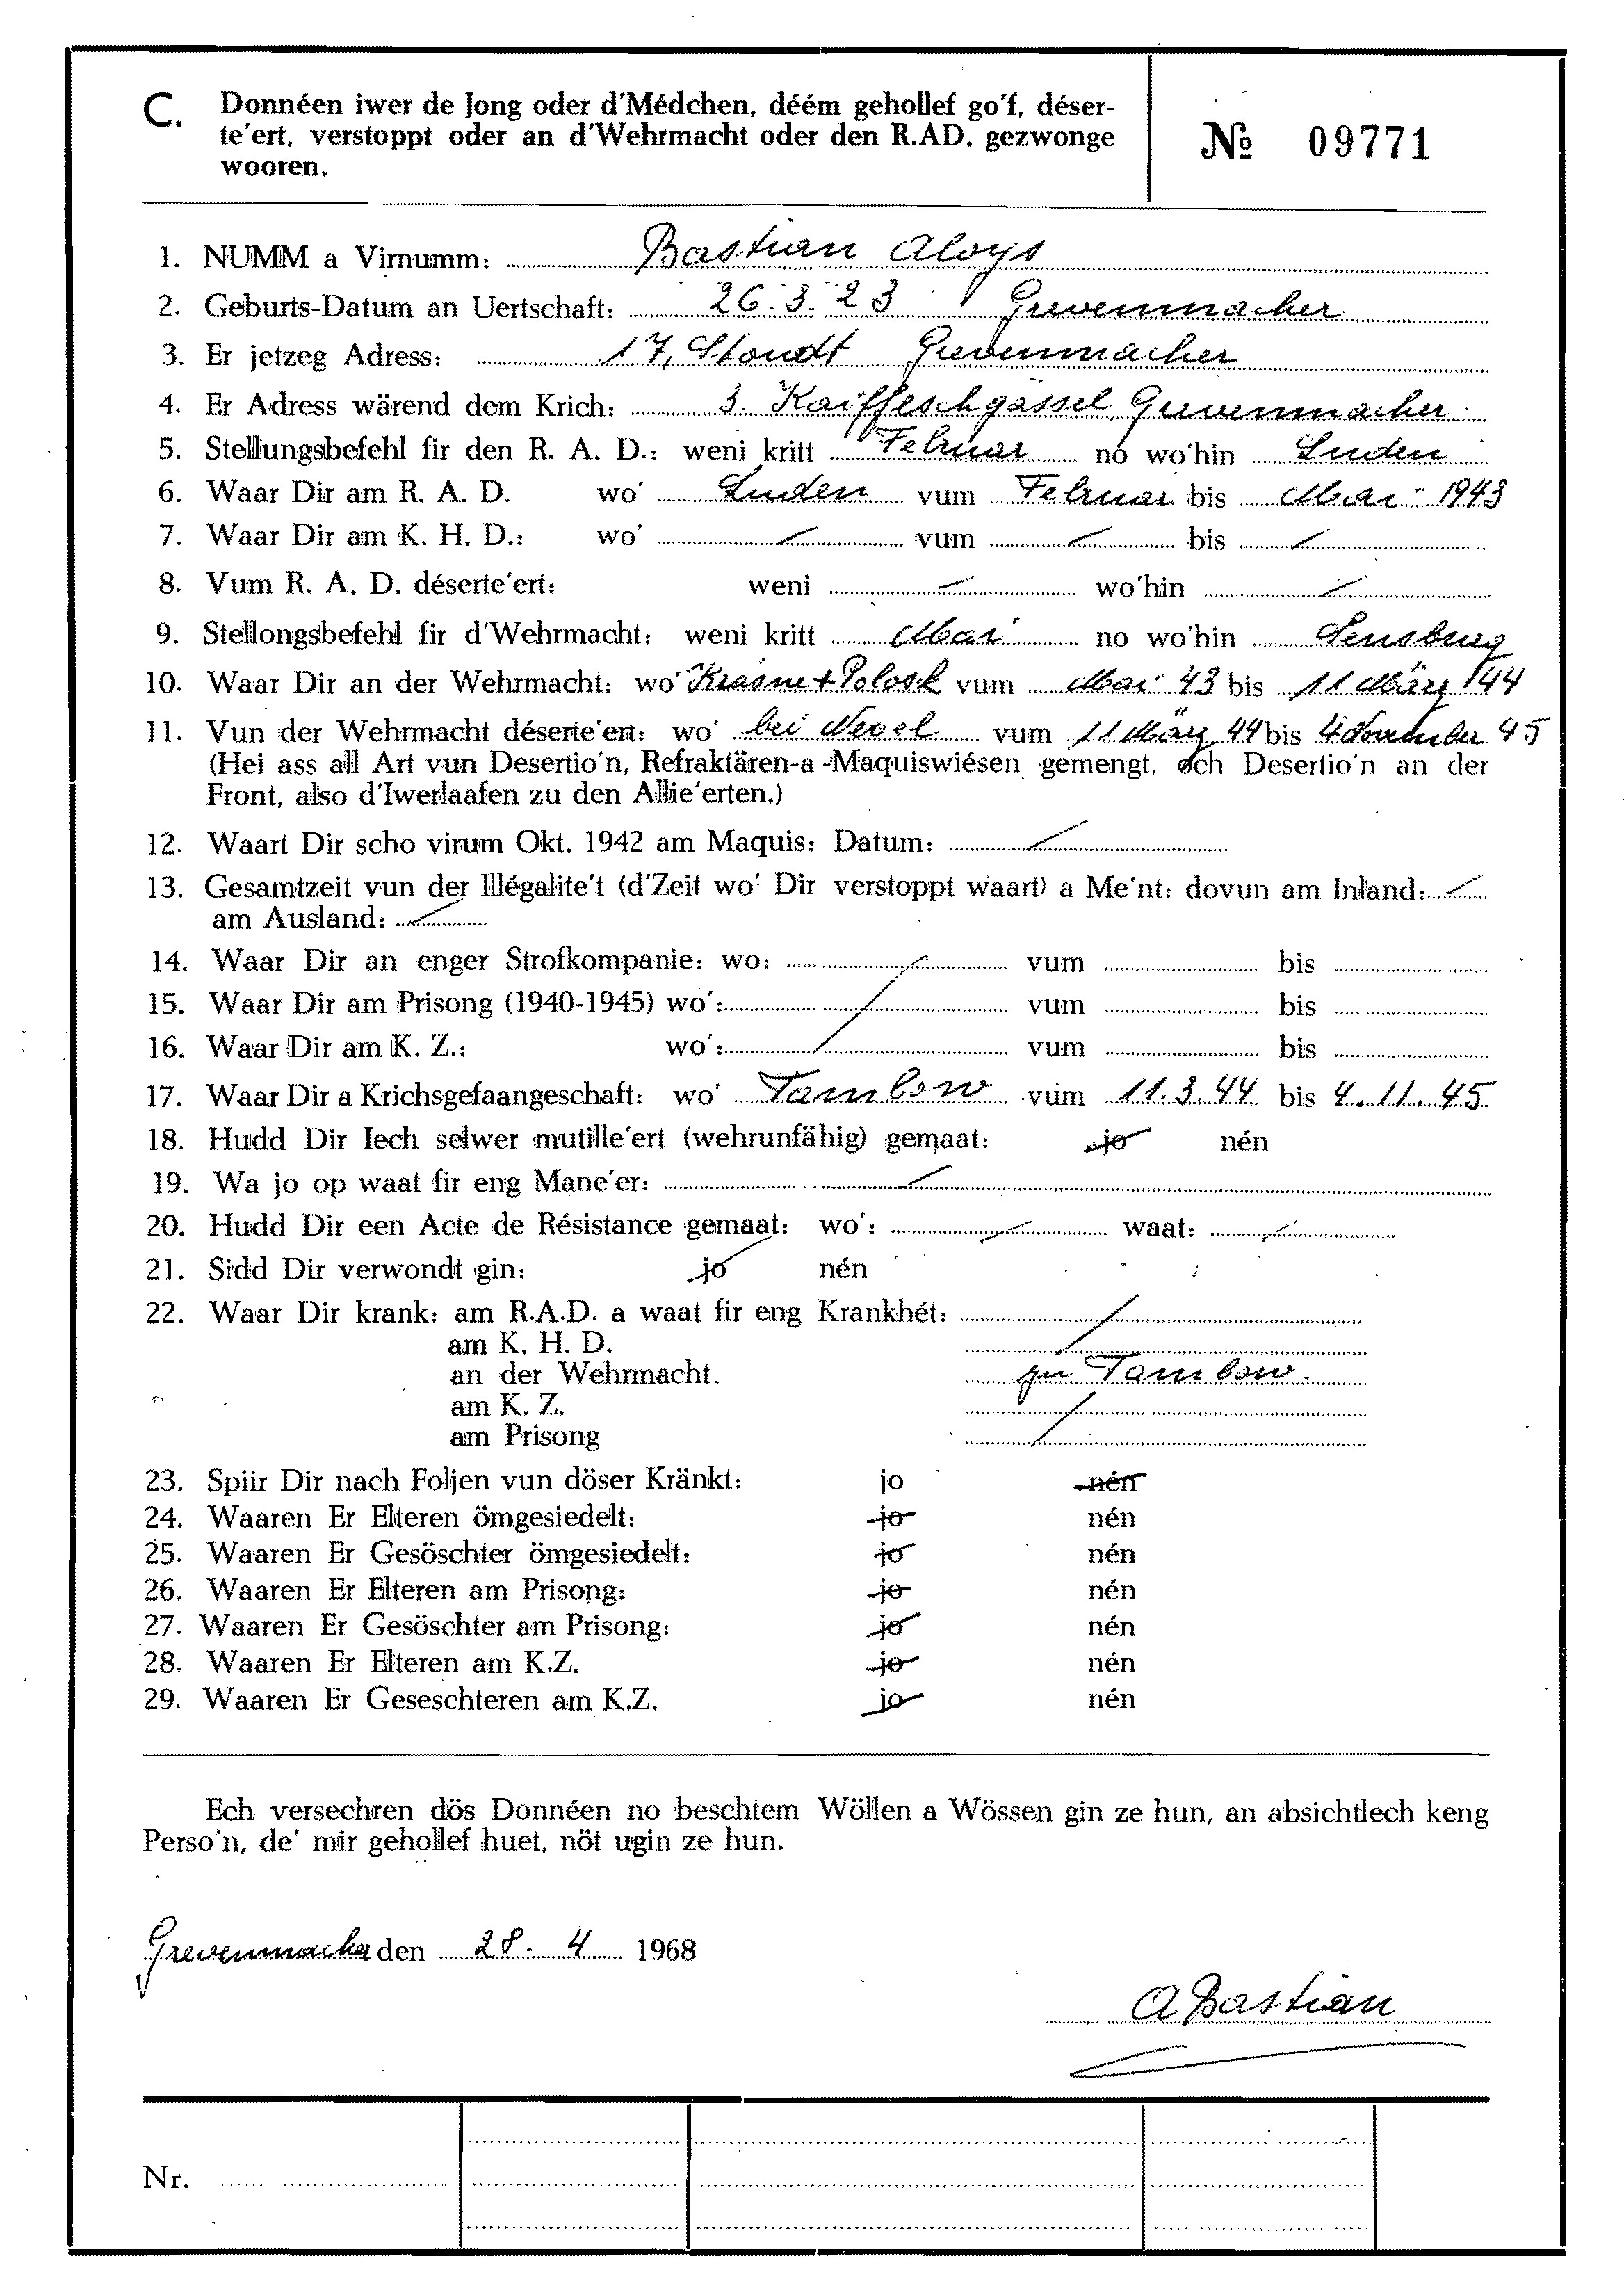 C. Donnéen iwer de Jong oder d'Médchen, déém gehollef go'f, déser-
te'ert, verstoppt oder an d'Wehrmacht oder den R.AD. gezwonge
wooren.
№ 09771
1. NUMM a Virnumm: Bastian Aloys
2. Geburts-Datum an Uertschaft: 26.3.23 Grevenmacher
3. Er jetzeg Adress: 17, Grevenmacher
4. Er Adress wärend dem Krich: 3. Kaiffeschgässel, Grevenmacher
5. Stellungsbefehl fir den R. A. D.: weni kritt Februar no wo'hin Luden
6. Waar Dir am R. A. D. wo' Luden vum Februar bis Mai 1943
7. Waar Dir am K. H. D.: wo' / vum / bis /
8. Vum R. A. D. déserte'ert: weni / wo'hin /
9. Stellongsbefehl fir d'Wehrmacht: weni kritt Mai no wo'hin Sensburg
10. Waar Dir an der Wehrmacht: wo' Krasne + Polosk vum Mai 43 bis 11 März 44
11. Vun der Wehrmacht déserte'ert: wo' bei Newel vum 11 März 44 bis 4 November 45
(Hei ass all Art vun Desertio'n, Refraktären-a -Maquiswiésen gemengt, och Desertio'n an der
Front, also d'Iwerlaafen zu den Allie'erten.)
12. Waart Dir scho virum Okt. 1942 am Maquis: Datum: /
13. Gesamtzeit vun der Illégalite't (d'Zeit wo' Dir verstoppt waart) a Me'nt: dovun am Inland: /
am Ausland: /
14. Waar Dir an enger Strofkompanie: wo: / vum bis
15. Waar Dir am Prisong (1940-1945) wo': / vum bis
16. Waar Dir am K. Z.: wo': / vum bis
17. Waar Dir a Krichsgefaangeschaft: wo' Tambow vum 11.3.44 bis 4.11.45
18. Hudd Dir Iech selwer mutille'ert (wehrunfähig) gemaat: jo nén
19. Wa jo op waat fir eng Mane'er: /
20. Hudd Dir een Acte de Résistance gemaat: wo': / waat: /
21. Sidd Dir verwondt gin: jo nén
22. Waar Dir krank: am R.A.D. a waat fir eng Krankhét: /
am K. H. D.
an der Wehrmacht. zu Tambow.
am K. Z. /
am Prisong
23. Spiir Dir nach Foljen vun döser Kränkt: jo nén
24. Waaren Er Elteren ömgesiedelt: jo nén
25. Waaren Er Gesöschter ömgesiedelt: jo nén
26. Waaren Er Elteren am Prisong: jo nén
27. Waaren Er Gesöschter am Prisong: jo nén
28. Waaren Er Elteren am K.Z. jo nén
29. Waaren Er Geseschteren am K.Z. jo nén
Ech versechren dös Donnéen no beschtem Wöllen a Wössen gin ze hun, an absichtlech keng
Perso'n, de' mir gehollef huet, nöt ugin ze hun.
Grevenmacher den 28. 4 1968
A Bastian
Nr.